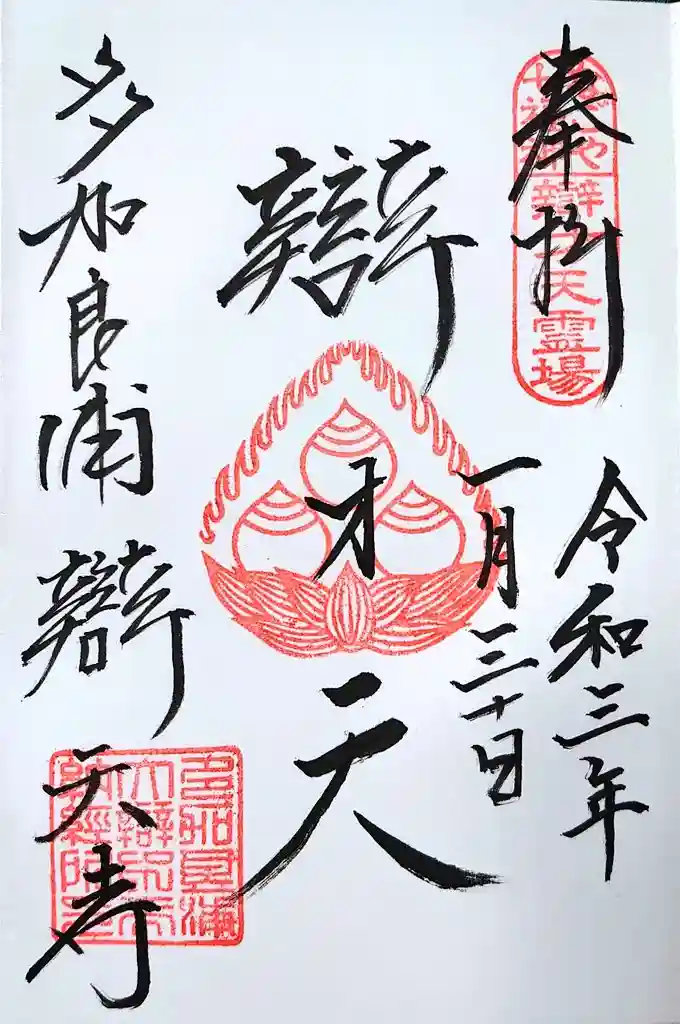 奉拝
辯天霊場
令和三年
一月三十日
辯才天
多加良浦辯天寺